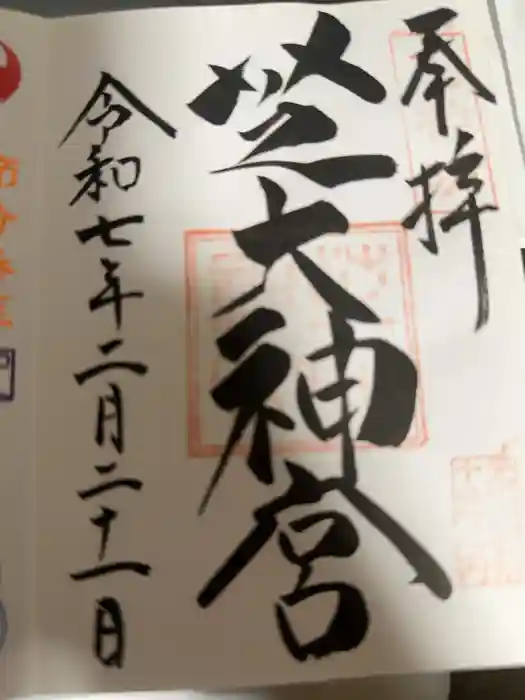 奉拝
芝大神宮
令和七年二月二十一日